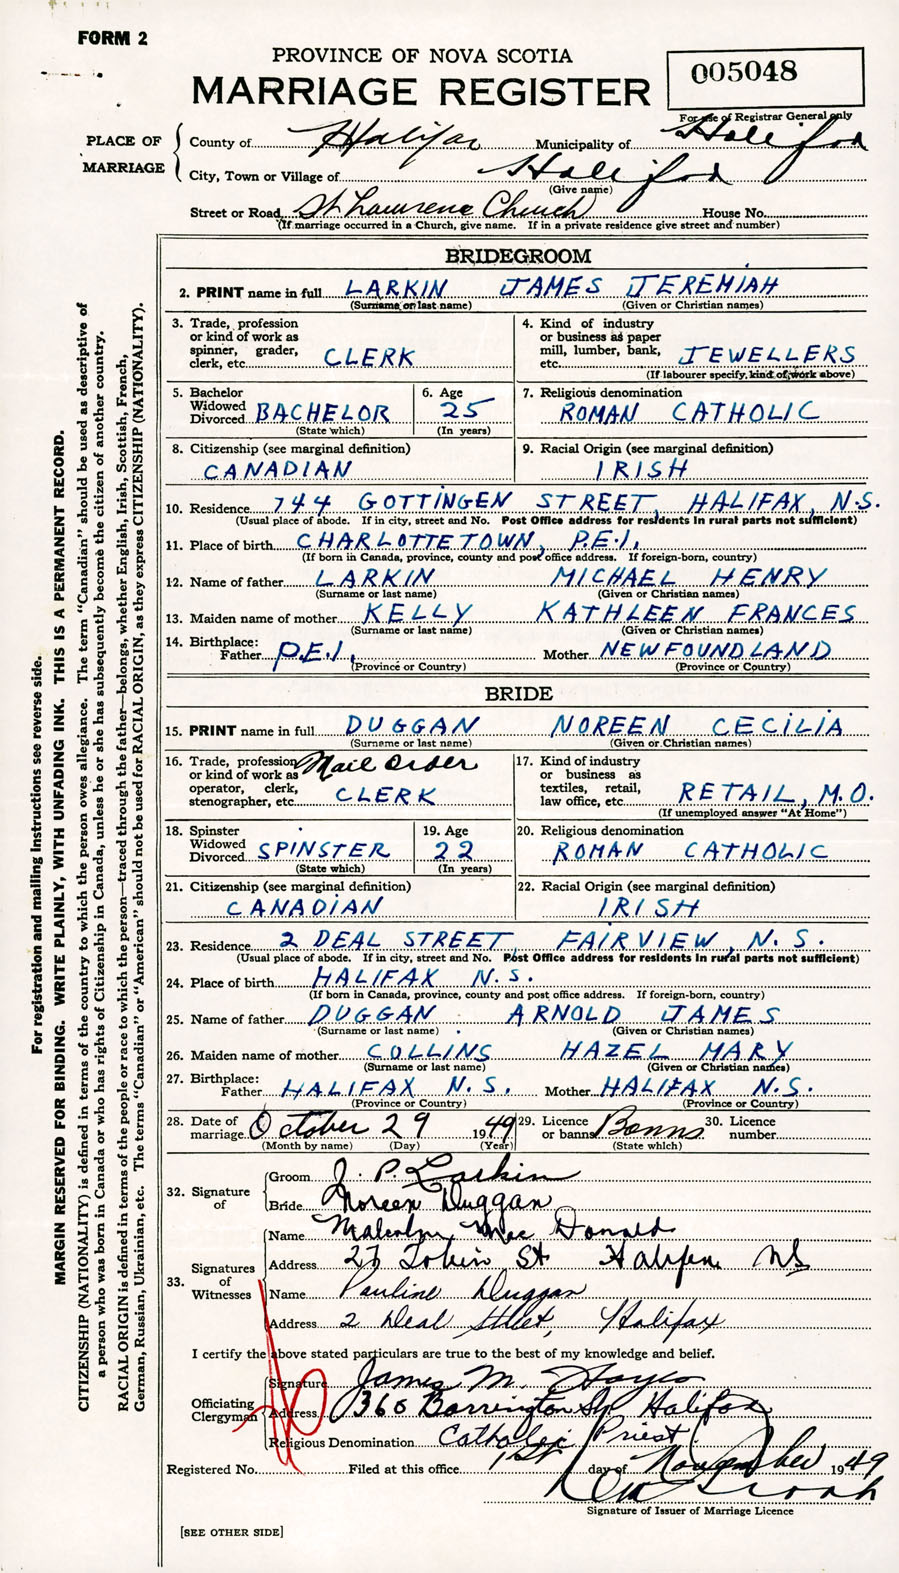 FORM 2
PROVINCE OF NOVA SCOTIA
MARRIAGE REGISTER
005048
For use of Registrar General only
PLACE OF MARRIAGE
County of Halifax Municipality of Halifax
City, Town or Village of Halifax
(Give name)
Street or Road St Lawrence Church House No.
(If marriage occurred in a Church, give name. If in a private residence give street and number)
BRIDEGROOM
2. PRINT name in full LARKIN JAMES JEREMIAH
(Surname or last name) (Given or Christian names)
3. Trade, profession or kind of work as spinner, grader, clerk, etc. CLERK
4. Kind of industry or business as paper mill, lumber, bank, etc. JEWELLERS
(If labourer specify kind of work above)
5. Bachelor Widowed Divorced BACHELOR
(State which)
6. Age 25
(In years)
7. Religious denomination
ROMAN CATHOLIC
8. Citizenship (see marginal definition)
CANADIAN
9. Racial Origin (see marginal definition)
IRISH
10. Residence 744 GOTTINGEN STREET, HALIFAX, N.S.
(Usual place of abode. If in city, street and No. Post Office address for residents in rural parts not sufficient)
11. Place of birth CHARLOTTETOWN, P.E.I.
(If born in Canada, province, county and post office address. If foreign-born, country)
12. Name of father LARKIN MICHAEL HENRY
(Surname or last name) (Given or Christian names)
13. Maiden name of mother KELLY KATHLEEN FRANCES
(Surname or last name) (Given or Christian names)
14. Birthplace:
Father P.E.I. Mother NEWFOUNDLAND
(Province or Country) (Province or Country)
BRIDE
15. PRINT name in full DUGGAN NOREEN CECILIA
(Surname or last name) (Given or Christian names)
16. Trade, profession or kind of work as operator, clerk, stenographer, etc. Mail order CLERK
17. Kind of industry or business as textiles, retail, law office, etc. RETAIL, M.O.
(If unemployed answer "At Home")
18. Spinster Widowed Divorced SPINSTER
(State which)
19. Age 22
(In years)
20. Religious denomination
ROMAN CATHOLIC
21. Citizenship (see marginal definition)
CANADIAN
22. Racial Origin (see marginal definition)
IRISH
23. Residence 2 DEAL STREET, FAIRVIEW, N.S.
(Usual place of abode. If in city, street and No. Post Office address for residents in rural parts not sufficient)
24. Place of birth HALIFAX N.S.
(If born in Canada, province, county and post office address. If foreign-born, country)
25. Name of father DUGGAN ARNOLD JAMES
(Surname or last name) (Given or Christian names)
26. Maiden name of mother COLLINS HAZEL MARY
(Surname or last name) (Given or Christian names)
27. Birthplace:
Father HALIFAX N.S. Mother HALIFAX N.S.
(Province or Country) (Province or Country)
28. Date of marriage October 29 1949
(Month by name) (Day) (Year)
29. Licence or banns Banns
(State which)
30. Licence number
32. Signature of
Groom J. P. Larkin
Bride Noreen Duggan
33. Signatures of Witnesses
Name Malcolm Mac Donald
Address 27 Tobin St Halifax NS
Name Pauline Duggan
Address 2 Deal Street, Halifax
I certify the above stated particulars are true to the best of my knowledge and belief.
Officiating Clergyman
Signature James M. Hayes
Address 366 Barrington St. Halifax
Religious Denomination Catholic Priest
Registered No. Filed at this office 1st day of November 1949
Signature of Issuer of Marriage Licence
[SEE OTHER SIDE]
For registration and mailing instructions see reverse side.
MARGIN RESERVED FOR BINDING. WRITE PLAINLY, WITH UNFADING INK. THIS IS A PERMANENT RECORD.
CITIZENSHIP (NATIONALITY) is defined in terms of the country to which the person owes allegiance. The term "Canadian" should be used as descriptive of
a person who was born in Canada or who has rights of Citizenship in Canada, unless he or she has subsequently become the citizen of another country.
RACIAL ORIGIN is defined in terms of the people or race to which the person—traced through the father—belongs, whether English, Irish, Scottish, French,
German, Russian, Ukrainian, etc. The terms "Canadian" or "American" should not be used for RACIAL ORIGIN, as they express CITIZENSHIP (NATIONALITY).